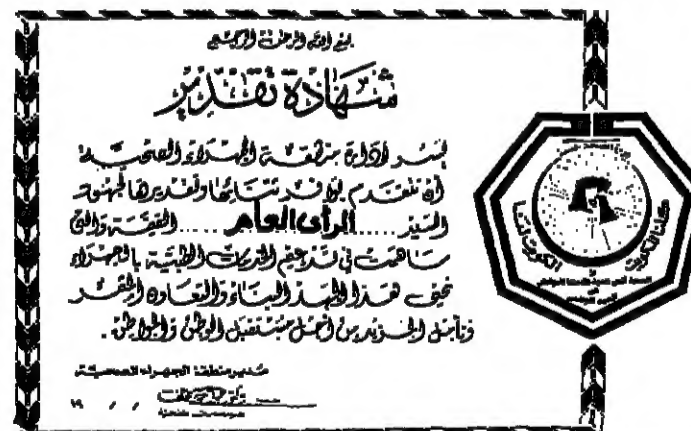 بسم الله الرحمن الرحيم
شهادة تقدير
يسر إدارة منطقة الجهراء الصحية
أن تتقدم بوافر ثنائها وتقديرها لجهود
السيد ..... الرأي العام ..... القيمة والتي
ساهمت في تدعيم الخدمات الطبية بالجهراء
نحيي هذا الجهد البناء والتعاون المثمر
ونأمل المزيد من أجل مستقبل الوطن والمواطن .
مدير منطقة الجهراء الصحية
١٩ / /
كلنا للكويت
الكويت لنا